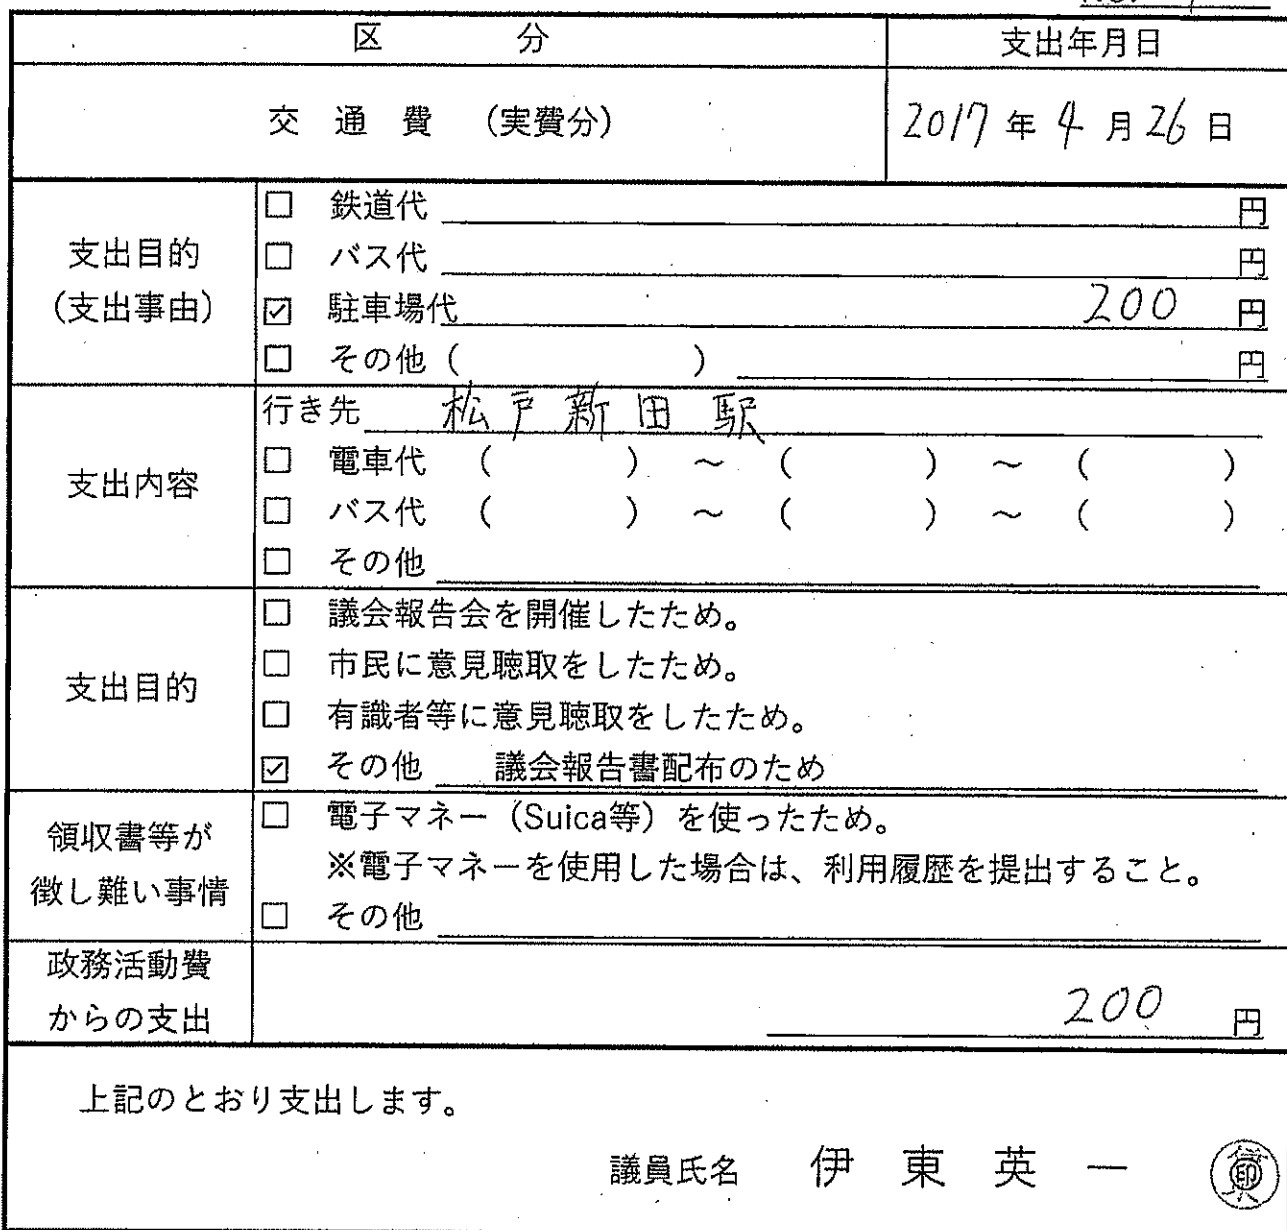 区 分 支出年月日
交 通 費 (実費分) 2017 年 4 月 26 日
支出目的
(支出事由)
□ 鉄道代 円
□ バス代 円
☑ 駐車場代 200 円
□ その他 ( ) 円
支出内容
行き先 松戸新田駅
□ 電車代 ( ) ～ ( ) ～ ( )
□ バス代 ( ) ～ ( ) ～ ( )
□ その他
支出目的
□ 議会報告会を開催したため。
□ 市民に意見聴取をしたため。
□ 有識者等に意見聴取をしたため。
☑ その他 議会報告書配布のため
領収書等が
徴し難い事情
□ 電子マネー（Suica等）を使ったため。
※電子マネーを使用した場合は、利用履歴を提出すること。
□ その他
政務活動費
からの支出
200 円
上記のとおり支出します。
議員氏名 伊 東 英 一 印